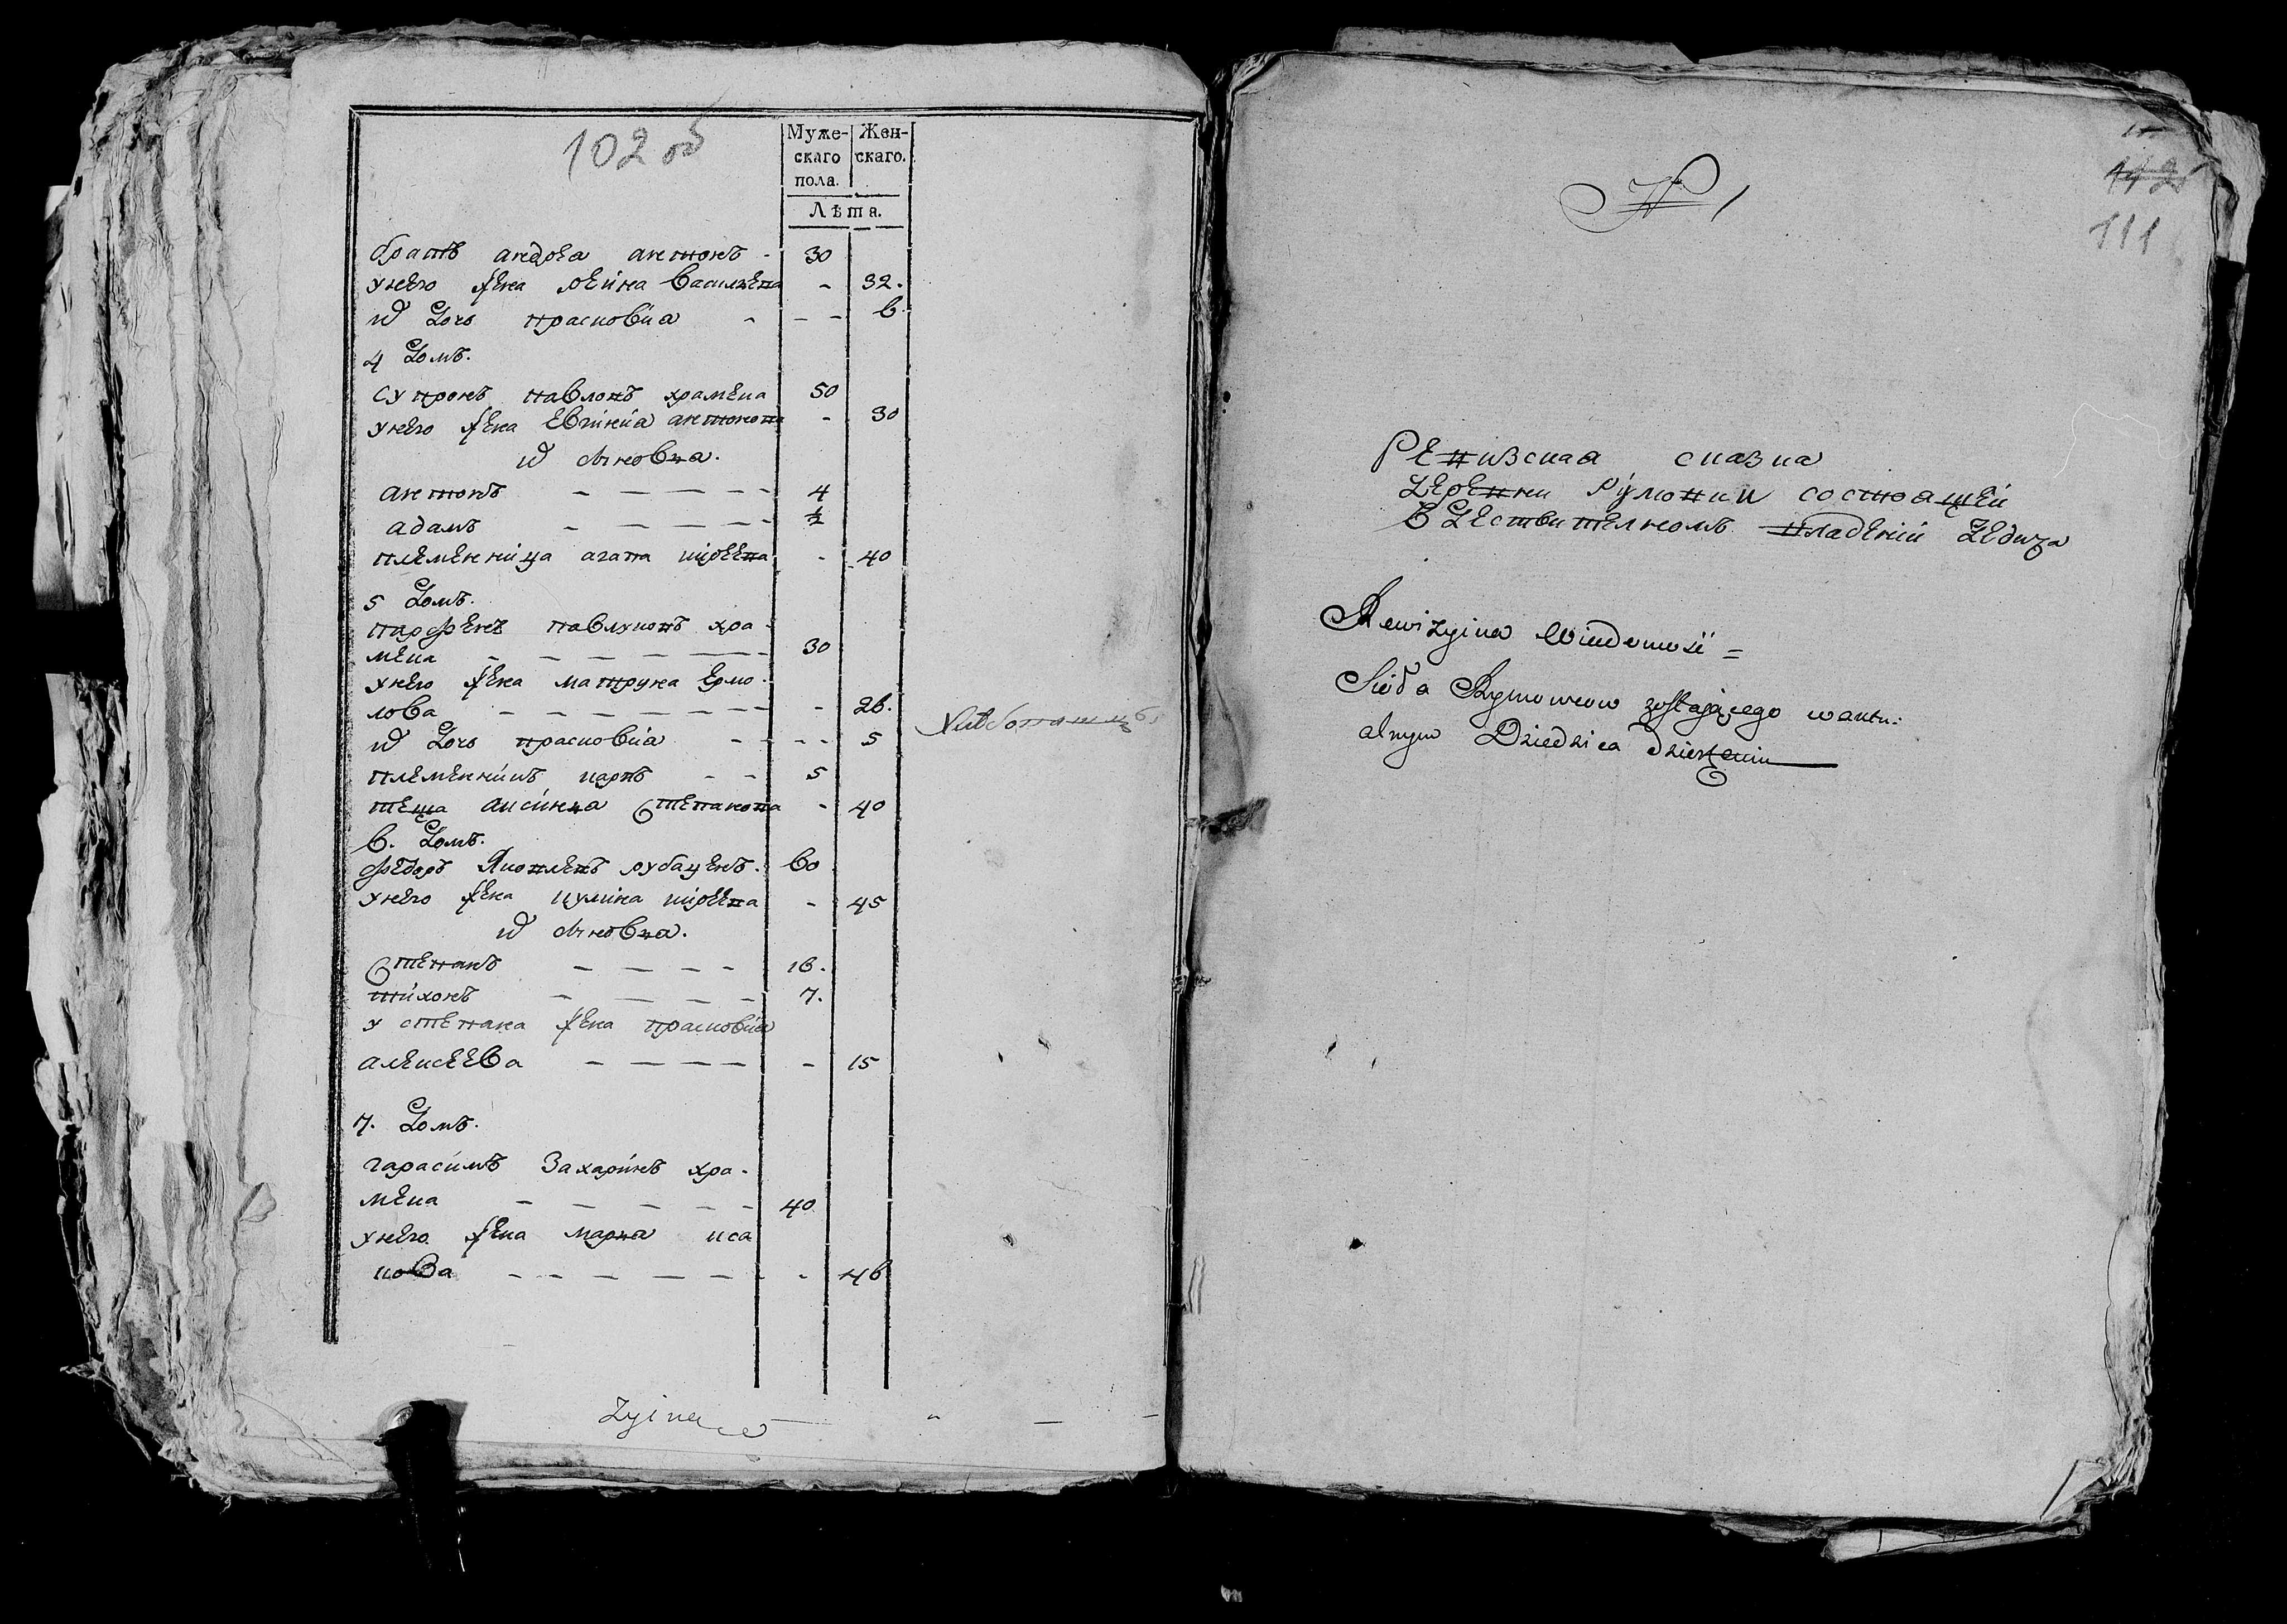 102 об
Муже-
скаго
пола.
Жен-
скаго.
Лѣта.
братъ андрea антонъ - 30
у него жена Рейна Василева - 32.
и дочъ прасковія - - - 6
4 домъ.
супронъ павловъ храмена 50
у него жена Евгинія антонова - 30
и сыновья.
антонъ - - - - - 4
адамъ - - - - - ½
племенница агапа - 40
5 домъ.
парфенъ павлуковъ хра-
мена - - - - - - 30
у него жена матруна ермо-
лова - - - - - - - 26.
и дочъ прасковія - - - - 5
племенникъ карпъ - - 5
теща аксинья Степанова - 40
6. домъ.
федоръ Яковлевъ рубаценъ. 60
у него жена кулина - 45
и сыновья.
Степанъ - - - - 16.
тихонъ - - - - 7.
у степана жена прасковія
алексеева - - - - - 15
7. домъ.
гарасимъ Захаринъ хра-
мена - - - - - 40
у него жена марья иса
кова - - - - - - - 46
Zyina
№ 1
111
Ревизская сказка
деревни Румовки состоащей
в дествителномъ владении
Rewizyina Wiadomość =
Sioła Rymowcow zostającego w aktu:
alnym Dziedzica dzierżeniu